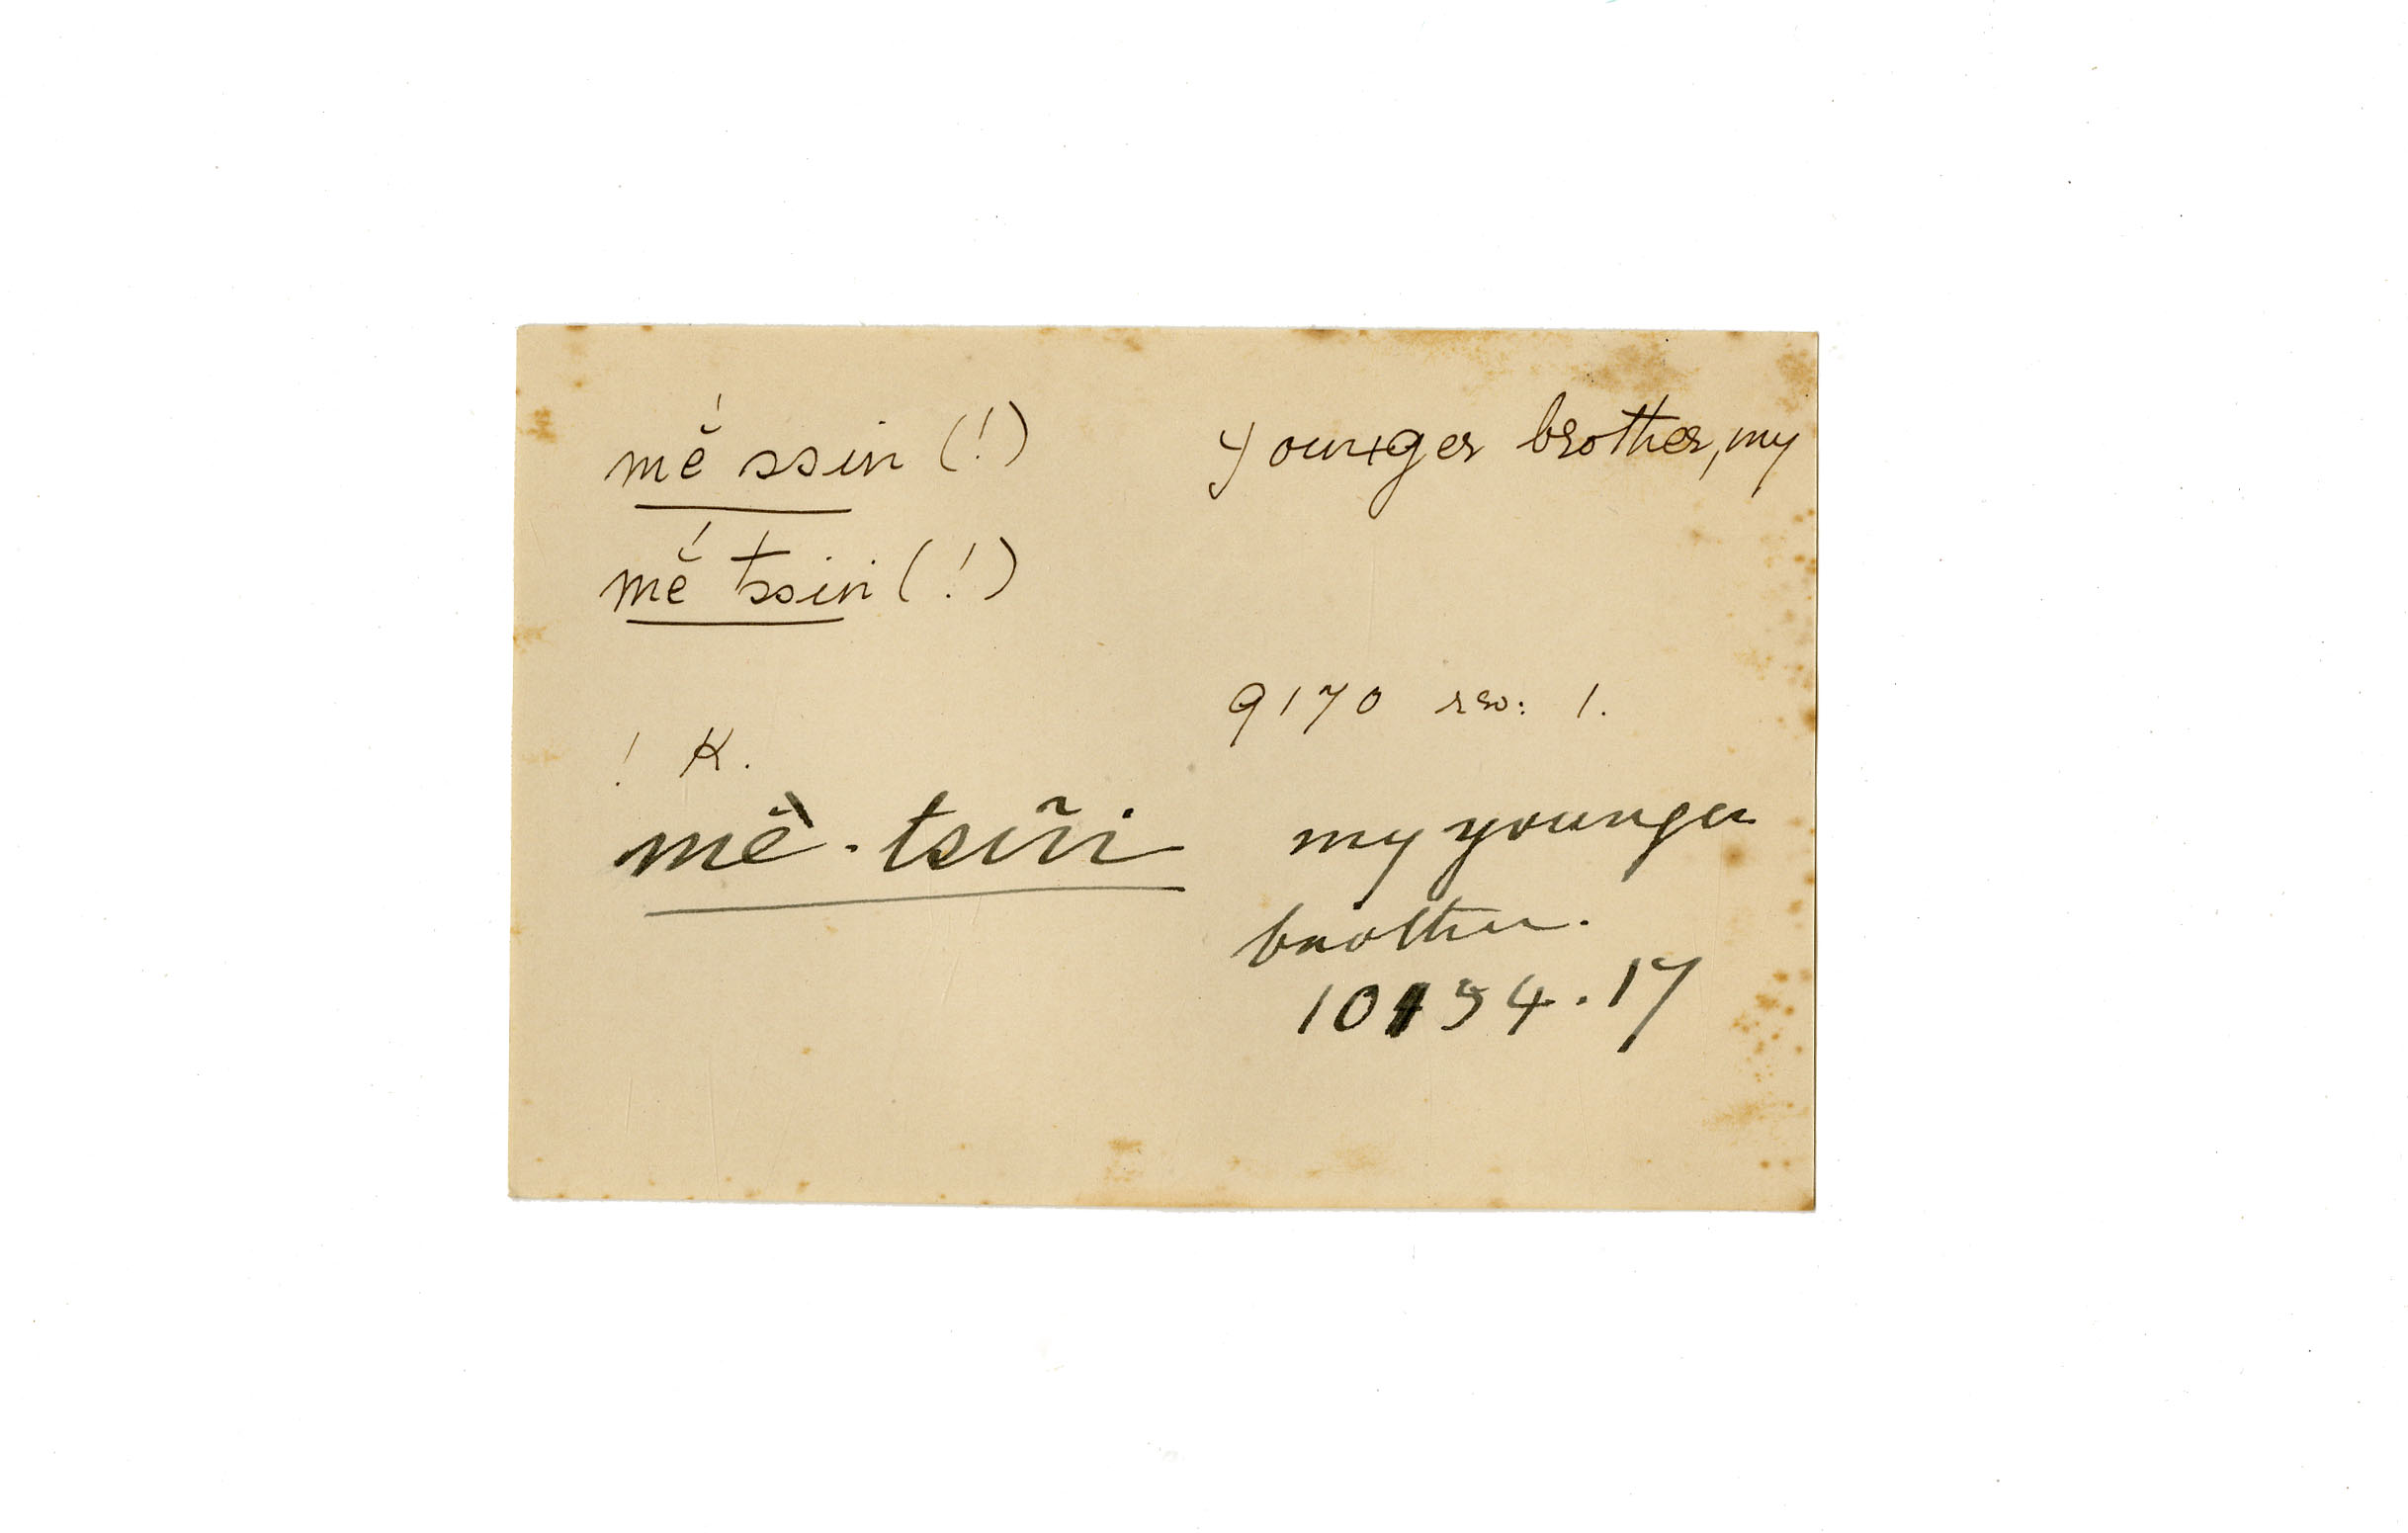 mĕ́ ssin (!) younger brother, my
mĕ́ tssin (!)
9170 rev: 1.
! K.
mĕ̀ · tsĩĩ my younger
brother.
10134.17